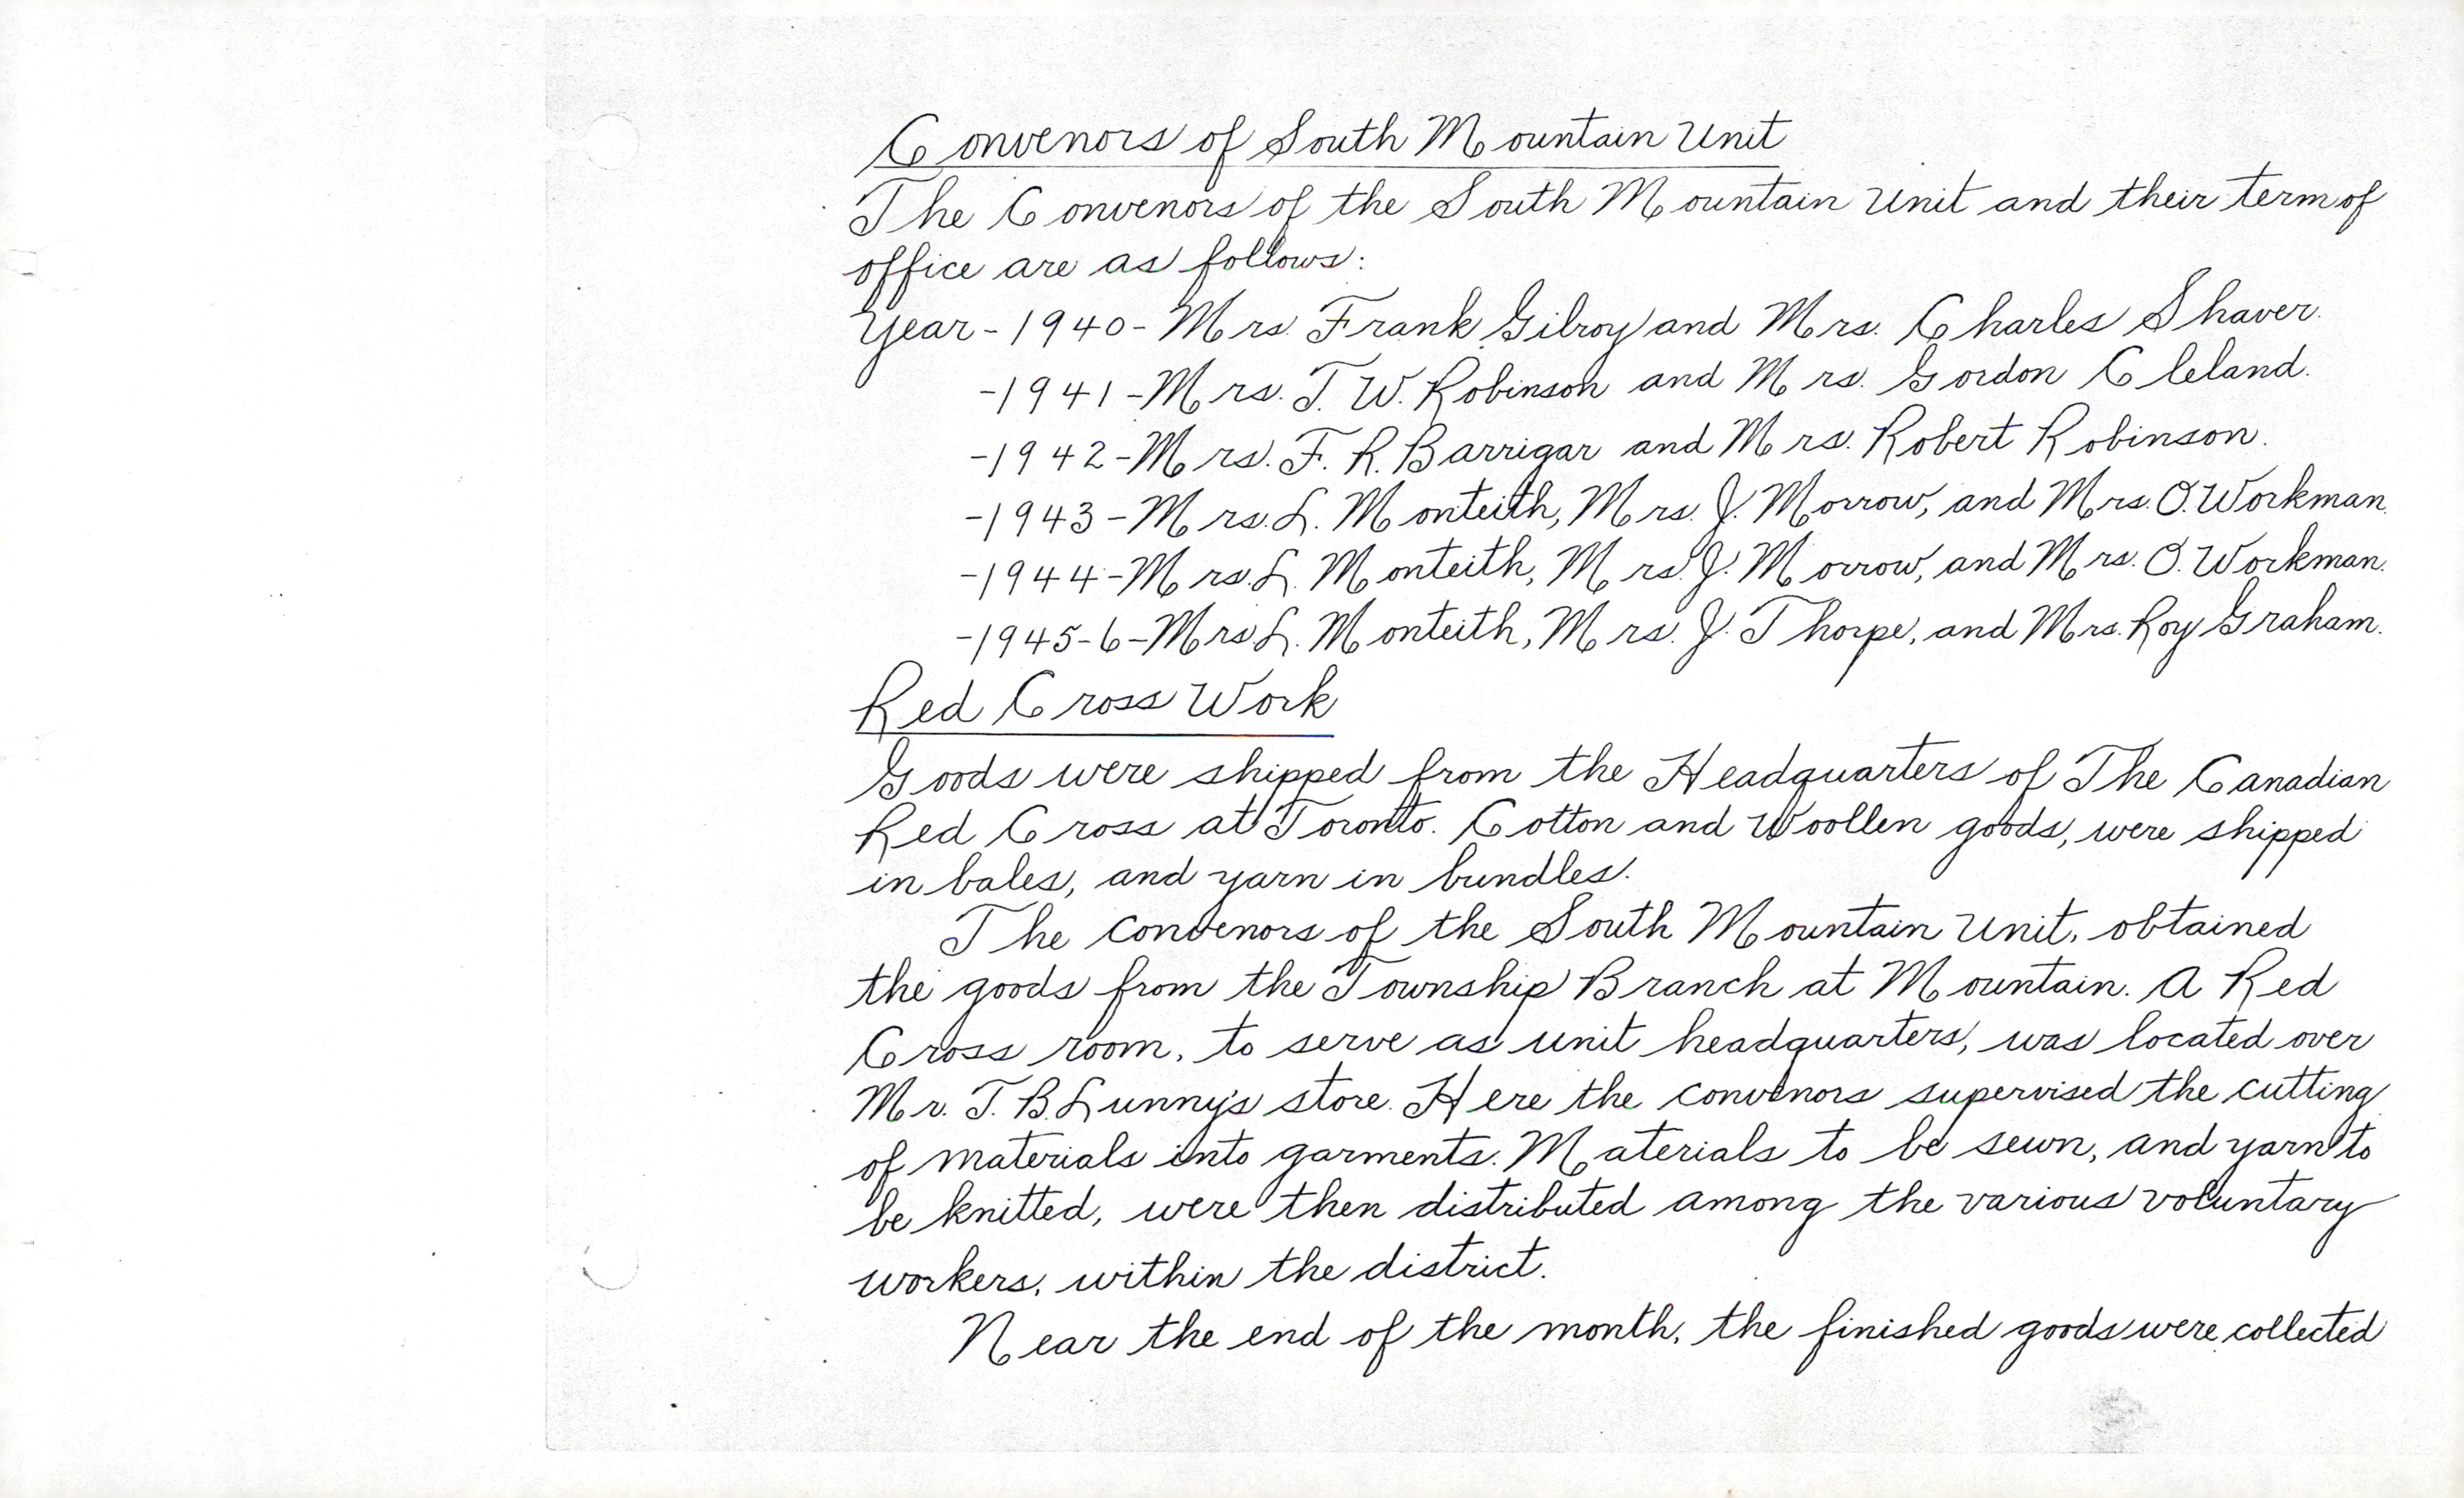 Convenors of South Mountain Unit
The Convenors of the South Mountain Unit and their term of
office are as follows:
Year - 1940 - Mrs. Frank Gilroy and Mrs. Charles Shaver.
- 1941 - Mrs. T. W. Robinson and Mrs. Gordon Cleland.
- 1942 - Mrs. F. R. Barrigar and Mrs. Robert Robinson.
- 1943 - Mrs. L. Monteith, Mrs. J. Morrow, and Mrs. O. Workman.
- 1944 - Mrs. L. Monteith, Mrs. J. Morrow, and Mrs. O. Workman.
- 1945-6 - Mrs L. Monteith, Mrs. J. Thorpe, and Mrs. Roy Graham.
Red Cross Work
Goods were shipped from the Headquarters of The Canadian
Red Cross at Toronto. Cotton and Woollen goods, were shipped
in bales, and yarn in bundles.
The convenors of the South Mountain Unit, obtained
the goods from the Township Branch at Mountain. A Red
Cross room, to serve as unit headquarters, was located over
Mr. T. B. Lunny's store. Here the convenors supervised the cutting
of materials into garments. Materials to be sewn, and yarn to
be knitted, were then distributed among the various voluntary
workers, within the district.
Near the end of the month, the finished goods were collected